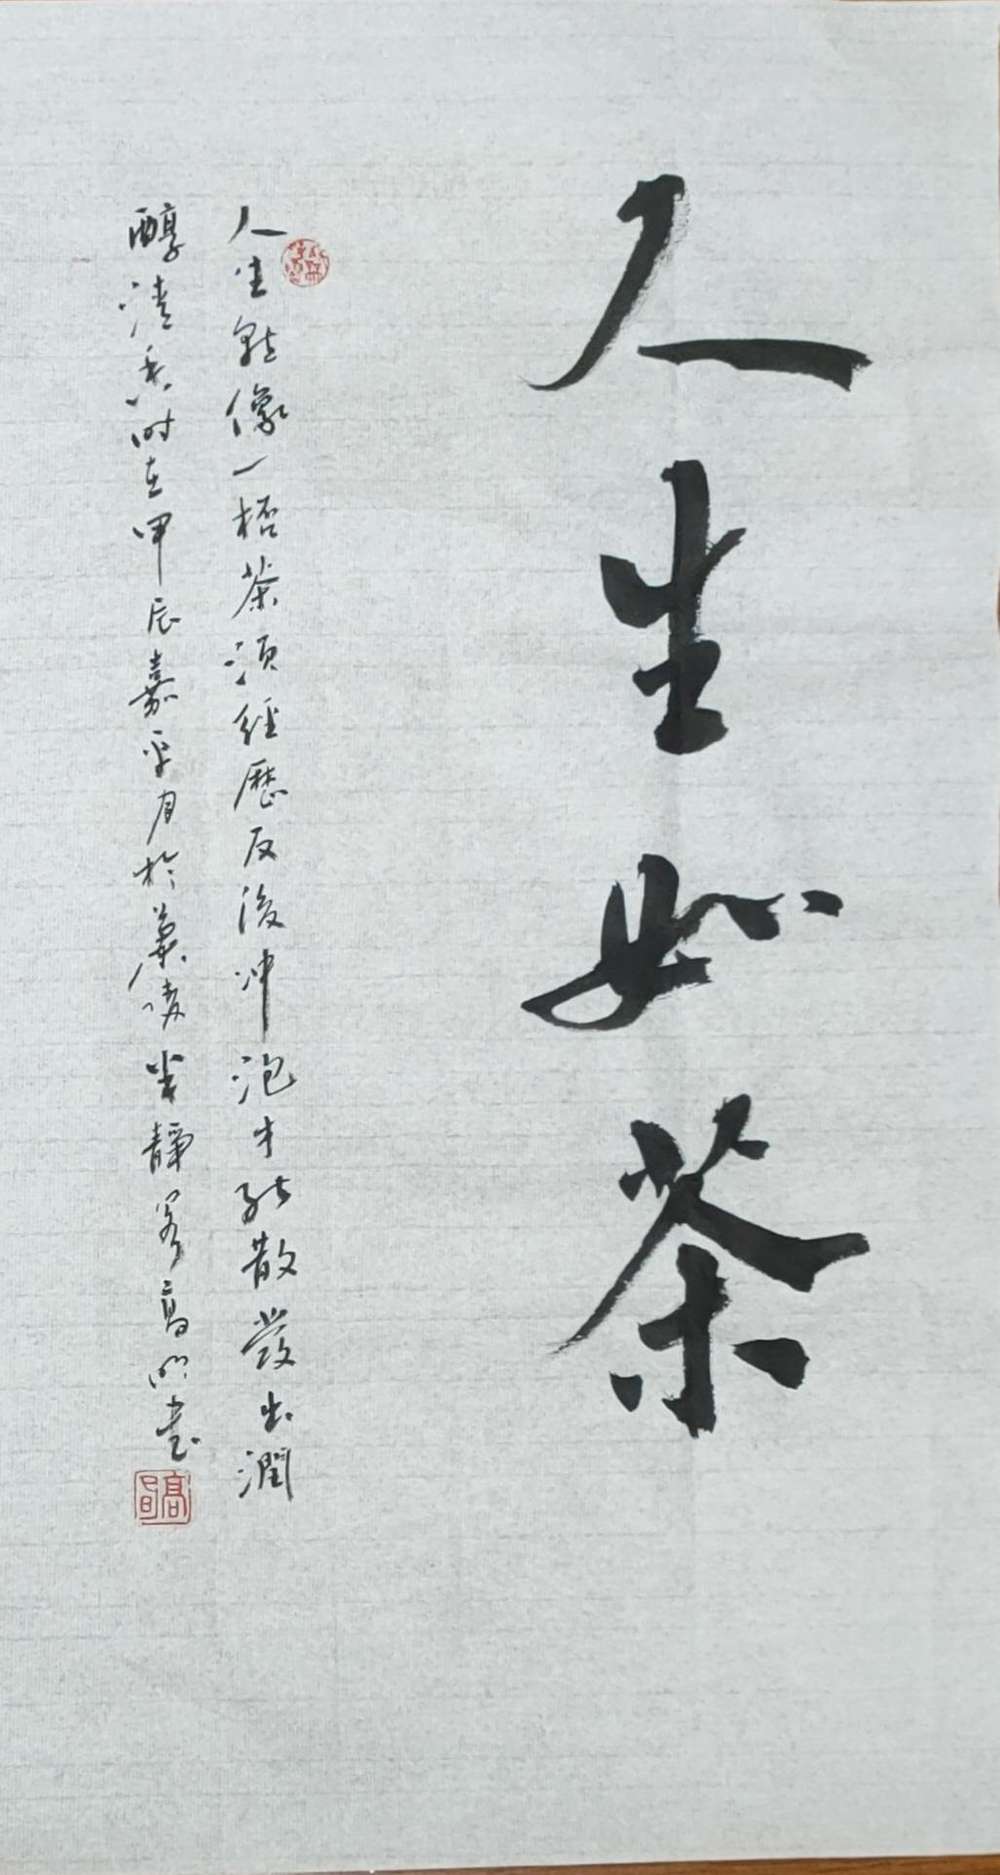 人生如茶
人生就像一桮茶須經歷反復冲泡才能散發出潤
醇清香時在甲辰嘉平月於蘭陵半靜齋高明書
高